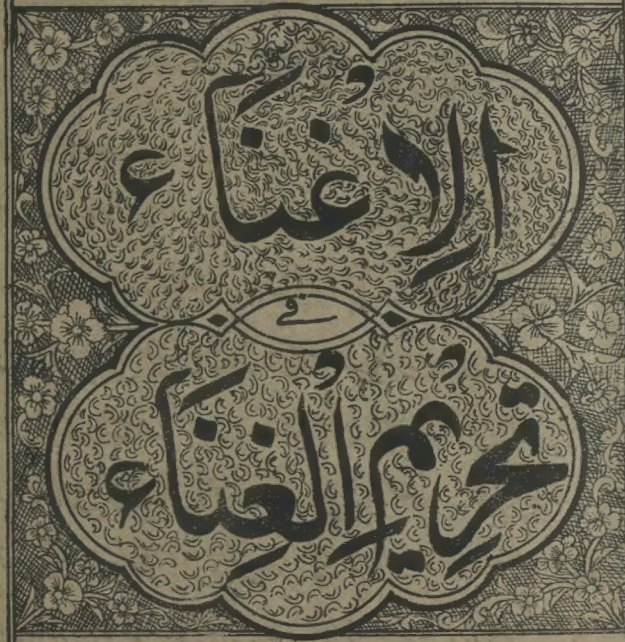 الِاغْنَاء
في
تحرِيمُ الْغِنَاء